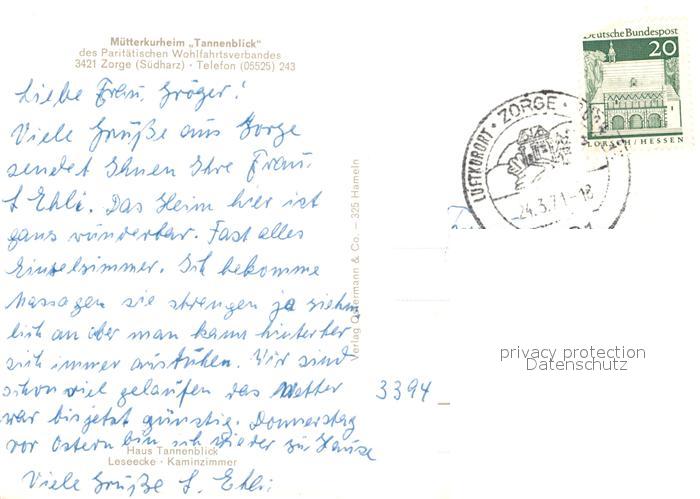 Mütterkurheim „Tannenblick"
des Paritätischen Wohlfahrtsverbandes
3421 Zorge (Südharz) · Telefon (05525) 243
Liebe Frau Gröger!
Viele Grüße aus Zorge
sendet Ihnen Ihre Frau
L Ehli. Das Heim hier ist
ganz wunderbar. Fast alles
Einzelzimmer. Ich bekomme
Massagen sie strengen ja ziehm
lich an aber man kann hinterher
sich immer ausruhen. Wir sind
schon viel gelaufen das Wetter
war bis jetzt günstig. Donnerstag
vor Ostern bin ich wieder zu Hause
Haus Tannenblick
Leseecke · Kaminzimmer
Viele Grüße L. Ehli
Verlag Ostermann & Co. — 325 Hameln
Deutsche Bundespost
20
LORSCH/HESSEN
LUFTKURORT · ZORGE
24.3.71-18
3394
privacy protection
Datenschutz